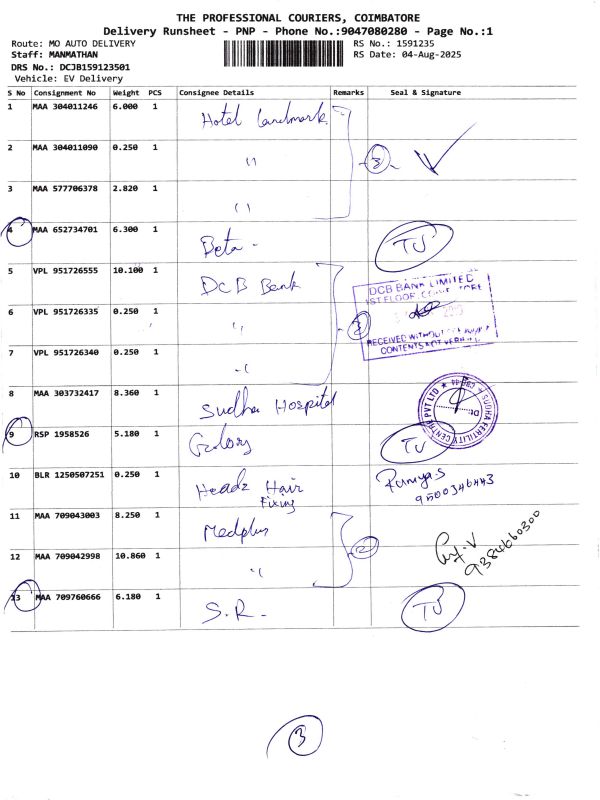 THE PROFESSIONAL COURIERS, COIMBATORE
Delivery Runsheet - PNP - Phone No.:9047080280 - Page No.:1
Route: MO AUTO DELIVERY RS No.: 1591235
Staff: MANMATHAN RS Date: 04-Aug-2025
DRS No.: DCJB159123501
Vehicle: EV Delivery
S No Consignment No Weight PCS Consignee Details Remarks Seal & Signature
1 MAA 304011246 6.000 1 Hotel Landmark
2 MAA 304011090 0.250 1 " 3
3 MAA 577706378 2.820 1 "
4 MAA 652734701 6.300 1 Beta - TU
5 VPL 951726555 10.100 1 DCB Bank
DCB BANK LIMITED
1ST FLOOR
6 VPL 951726335 0.250 1 " 3
RECEIVED WITHOUT
CONTENTS NOT
7 VPL 951726340 0.250 1 - "
8 MAA 303732417 8.360 1 Sudha Hospital
SUDHA FERTILITY CENTRE PVT LTD
9 RSP 1958526 5.180 1 TU
10 BLR 1250507251 0.250 1 Headz Hair Fixing Ramya.S
9500346443
11 MAA 709043003 8.250 1 Medplus
9384660300
12 MAA 709042998 10.860 1 " 2
13 MAA 709760666 6.180 1 S.R. - TU
3